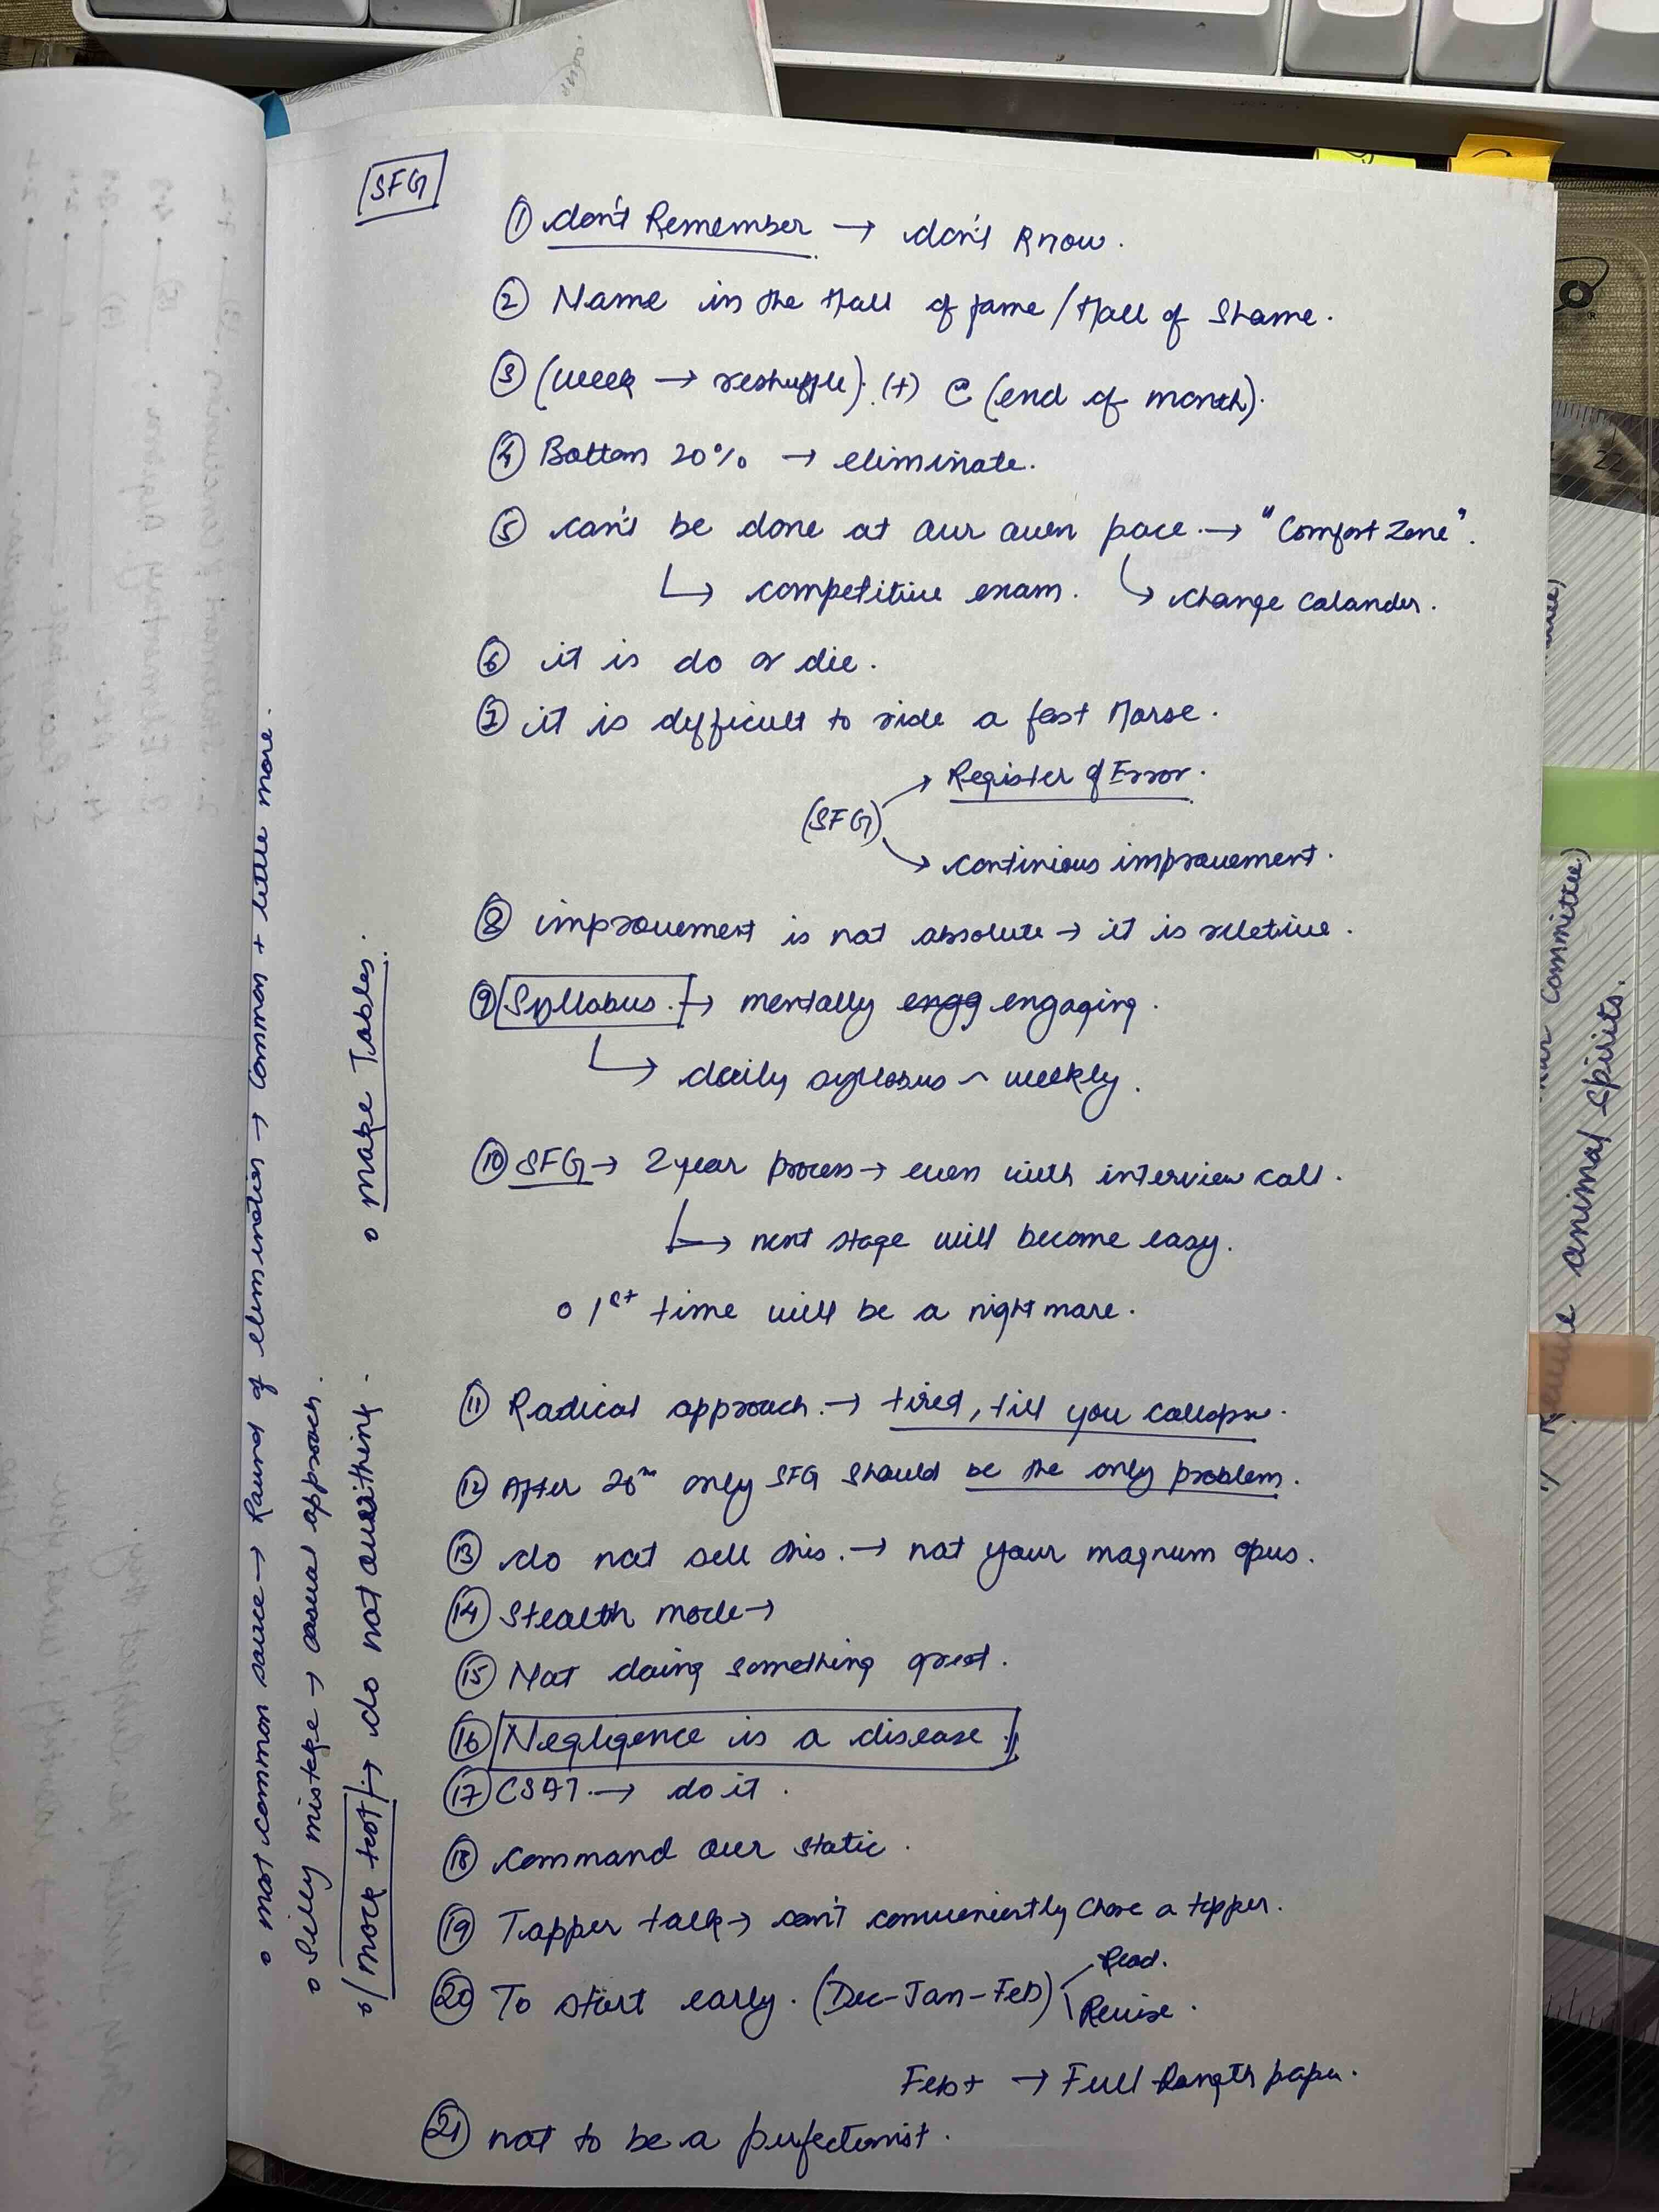 SFG
① don't Remember → don't know.
② Name in the Hall of fame / Hall of Shame.
③ (week → reshuffle). (+) C (end of month).
④ Bottom 20% → eliminate.
⑤ can't be done at our own pace. → "Comfort Zone".
↳ competitive exam. ↳ change calander.
⑥ it is do or die.
⑦ it is difficult to ride a fast Horse.
(SFG) → Register of Error.
→ continious improvement.
⑧ improvement is not absolute → it is reletive.
⑨ Syllabus. → mentally engg engaging.
↳ daily syllabus ~ weekly.
⑩ SFG → 2 year process → even with interview call.
↳ next stage will become easy.
o 1st time will be a nightmare.
⑪ Radical approach. → tired, till you collapse.
⑫ After only SFG should be the only problem.
⑬ do not sell this. → not your magnum opus.
⑭ Stealth mode →
⑮ Not doing something great.
⑯ Negligence is a disease.
⑰ CSAT. → do it.
⑱ command over static.
⑲ Topper talk → can't conveniently chose a topper.
⑳ To start early. (Dec-Jan-Feb) Read.
Revise.
Feb+ → Full length paper.
㉑ not to be a perfectionist.
o most common source → Round of elimination → common + little more.
o Silly mistake → casual approach.
o mock test → do not overthink.
o make Tables.
committee)
animal spirits.